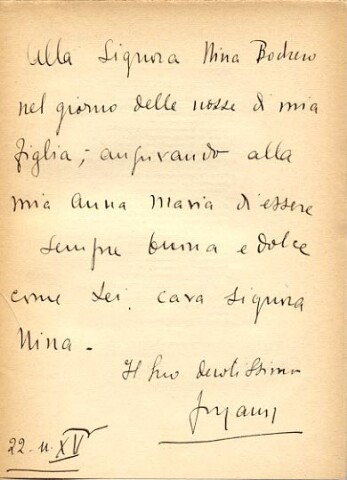 Alla Signora Nina Bodrero
nel giorno delle nozze di mia
figlia; augurando alla
mia Anna Maria di essere
sempre buona e dolce
come Lei, cara Signora
Nina -
Il Suo devotissimo
22. 11. XV